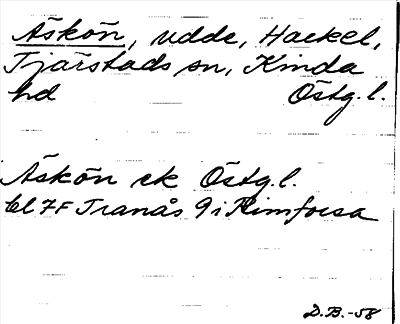 Äskön, udde, Hackel,
Tjärstads sn, Kinda
hd Östg.l.
Äskön ek Östg.l.
bl 7F Tranås 9i Rimforsa
D.B.-58